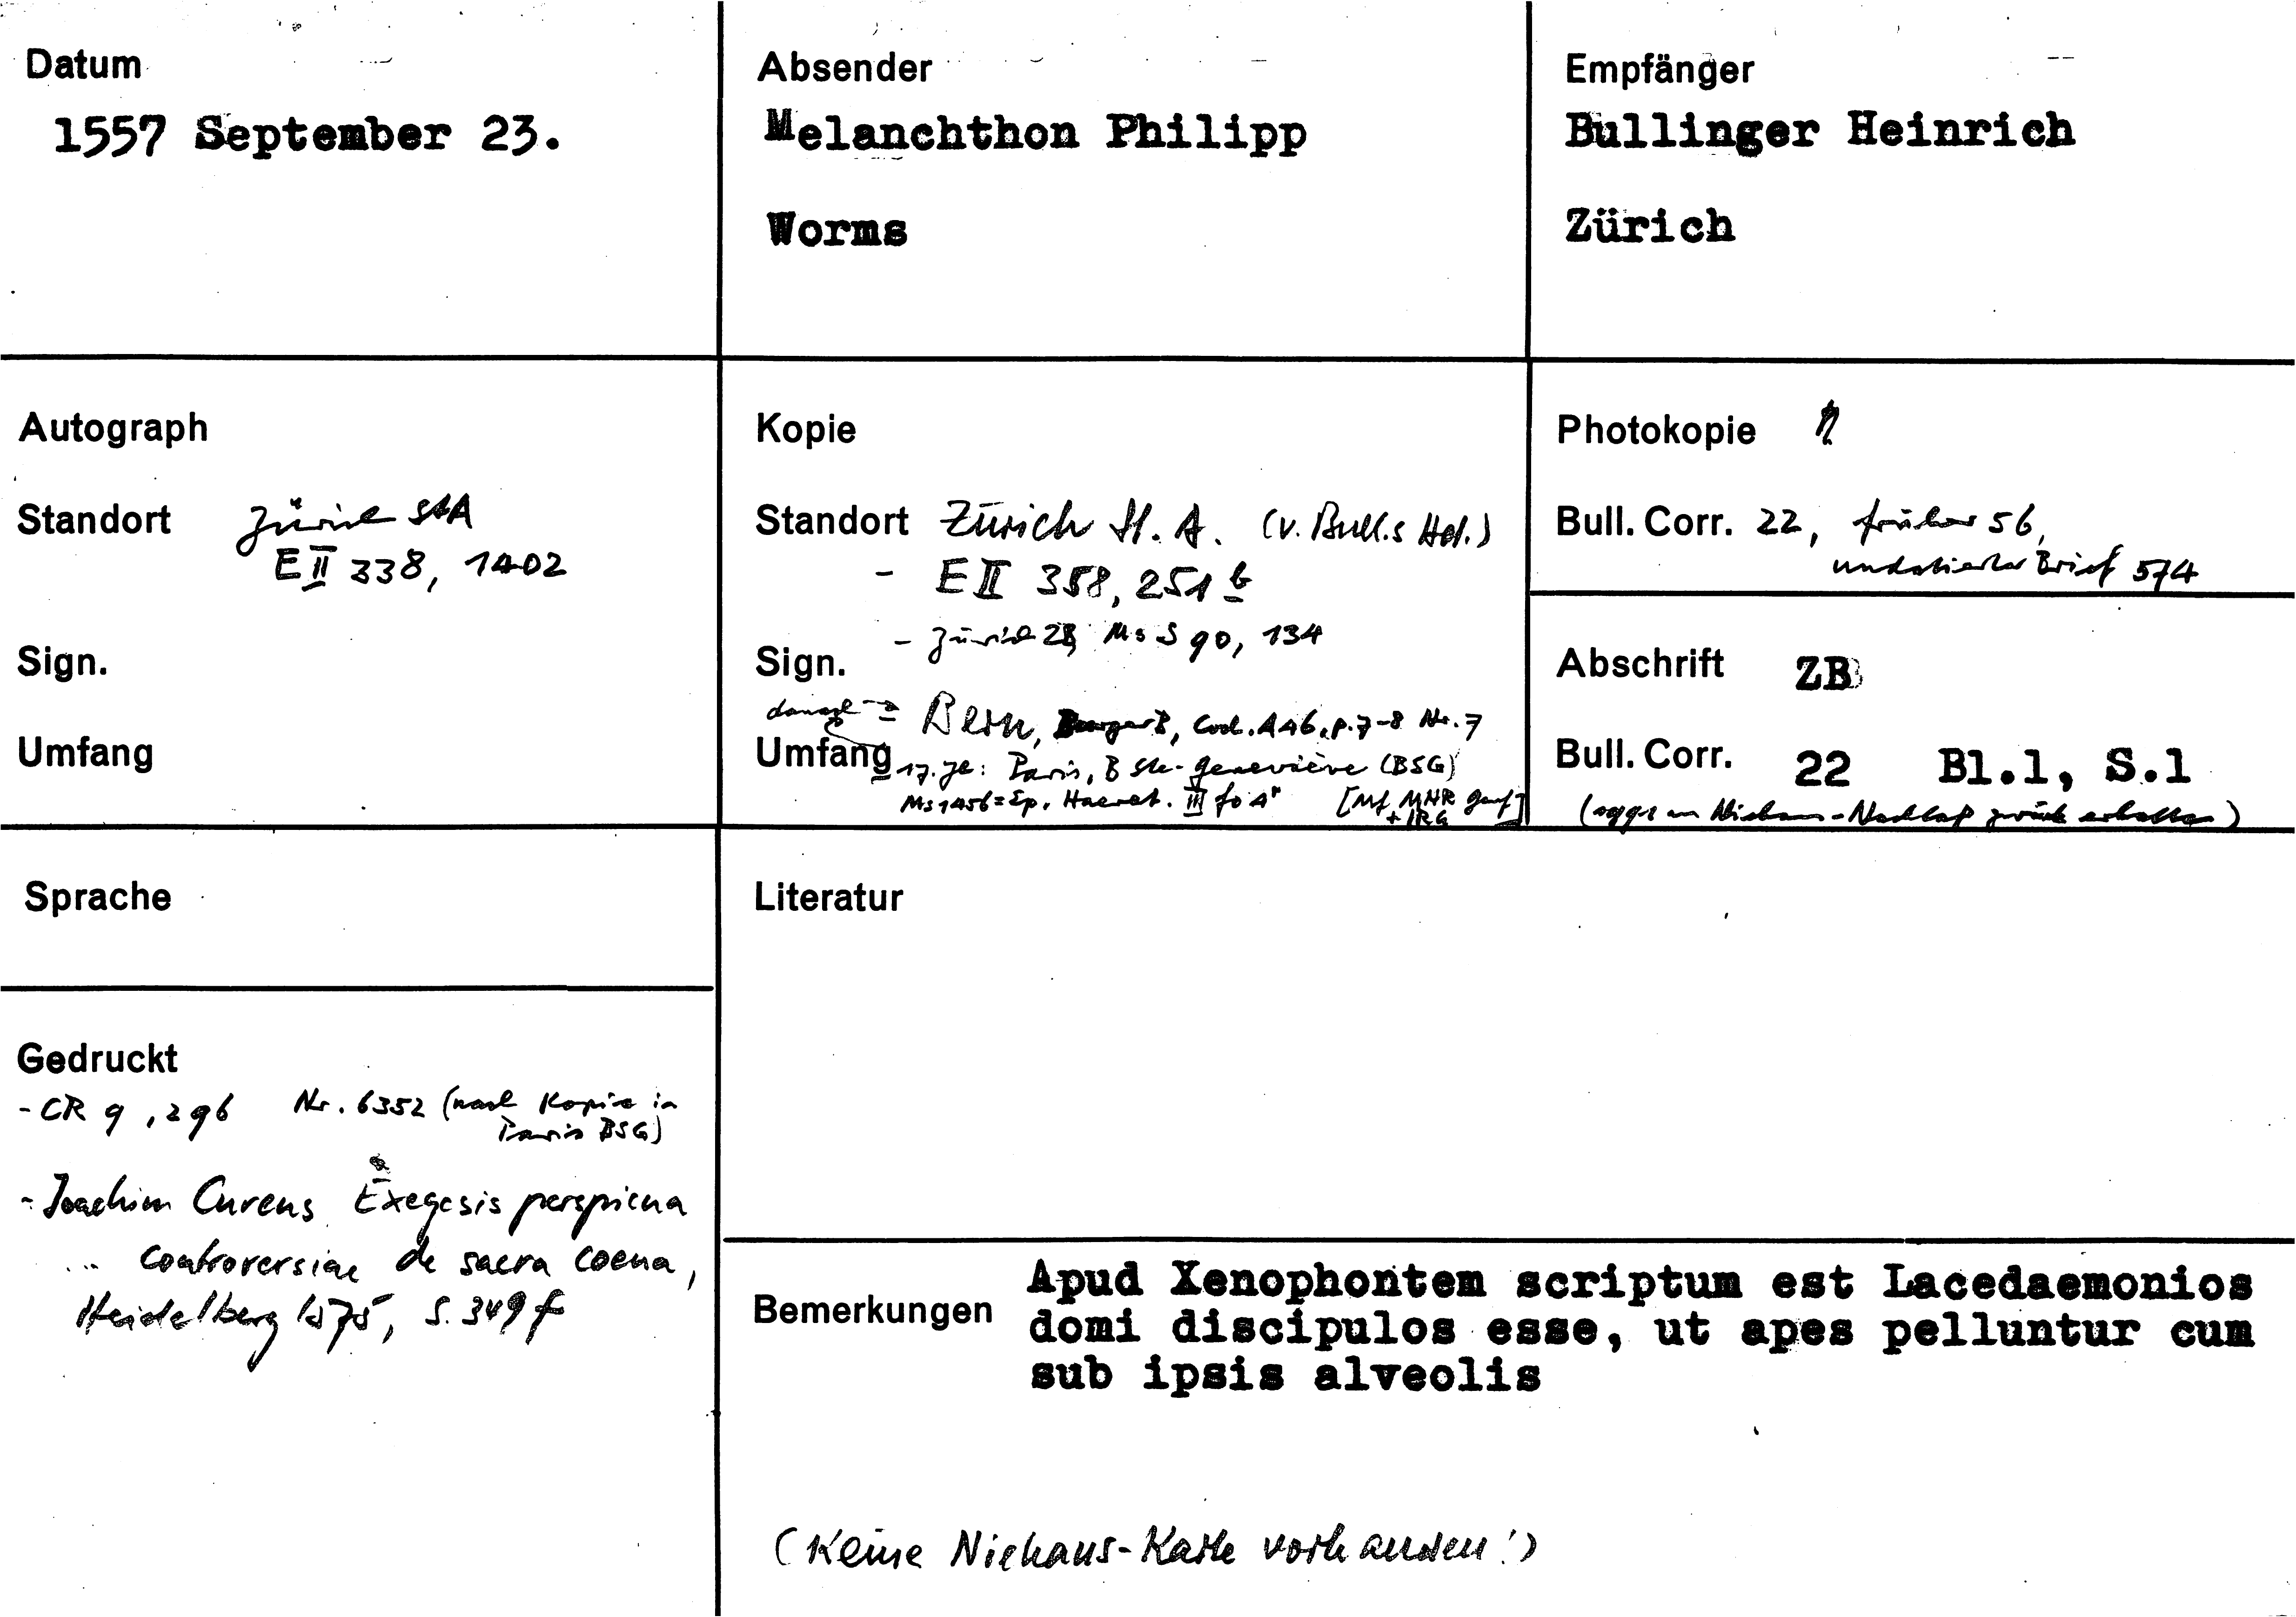 Datum
1557 September 23.
Absender
Melanchthon Philipp
Worms
Empfänger
Bullinger Heinrich
Zürich
Autograph
Standort Zürich StA
E II 338, 1402
Sign.
Umfang
Kopie
Standort Zürich St. A. (v. Bull.s Hd.)
- E II 358, 251 b
- Zürich ZB, Ms S 90, 134
Sign.
danach → Bern, BurgerB, Cod. A 46, p. 7-8 Nr. 7
Umfang 17. Jh: Paris, B Ste-Geneviève (BSG)
Ms 1456 = Ep. Haeret. III fo 4r [Mf MHR Genf]
+ IRG
Photokopie
Bull. Corr. 22, früher 56,
undatierter Brief 574
Abschrift ZB
Bull. Corr. 22 Bl.1, S.1
Niehaus-Nachlaß zurück erhalten)
Sprache
Gedruckt
- CR 9, 296 Nr. 6352 (nach Kopie in
Paris BSG)
- Joachim Cureus Exegesis perspicua
... controversiae de sacra coena,
Heidelberg 1575, S. 349 f
Literatur
Bemerkungen Apud Xenophontem scriptum est Lacedaemonios
domi discipulos esse, ut apes pelluntur cum
sub ipsis alveolis
(Keine Niehaus-Karte vorhanden!)